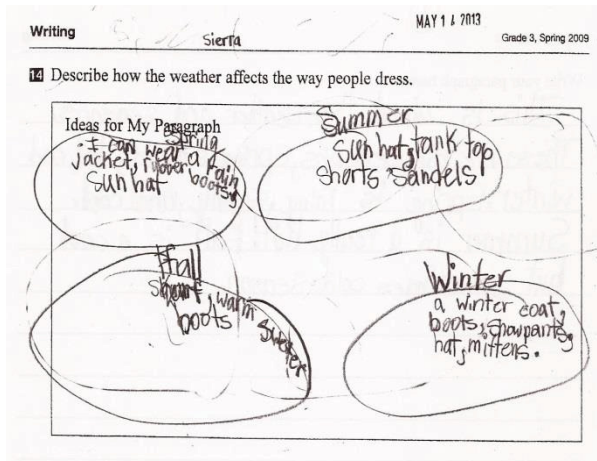 Writing
Sierra
MAY 1 6 2013
Grade 3, Spring 2009
14 Describe how the weather affects the way people dress.
Ideas for My Paragraph
Spring
I can wear a rain
jacket, rubber boots,
sun hat
Summer
sun hat, tank top
shorts sandels
fall
warm
boots
Winter
a winter coat,
boots, snowpants,
hat, mittens.